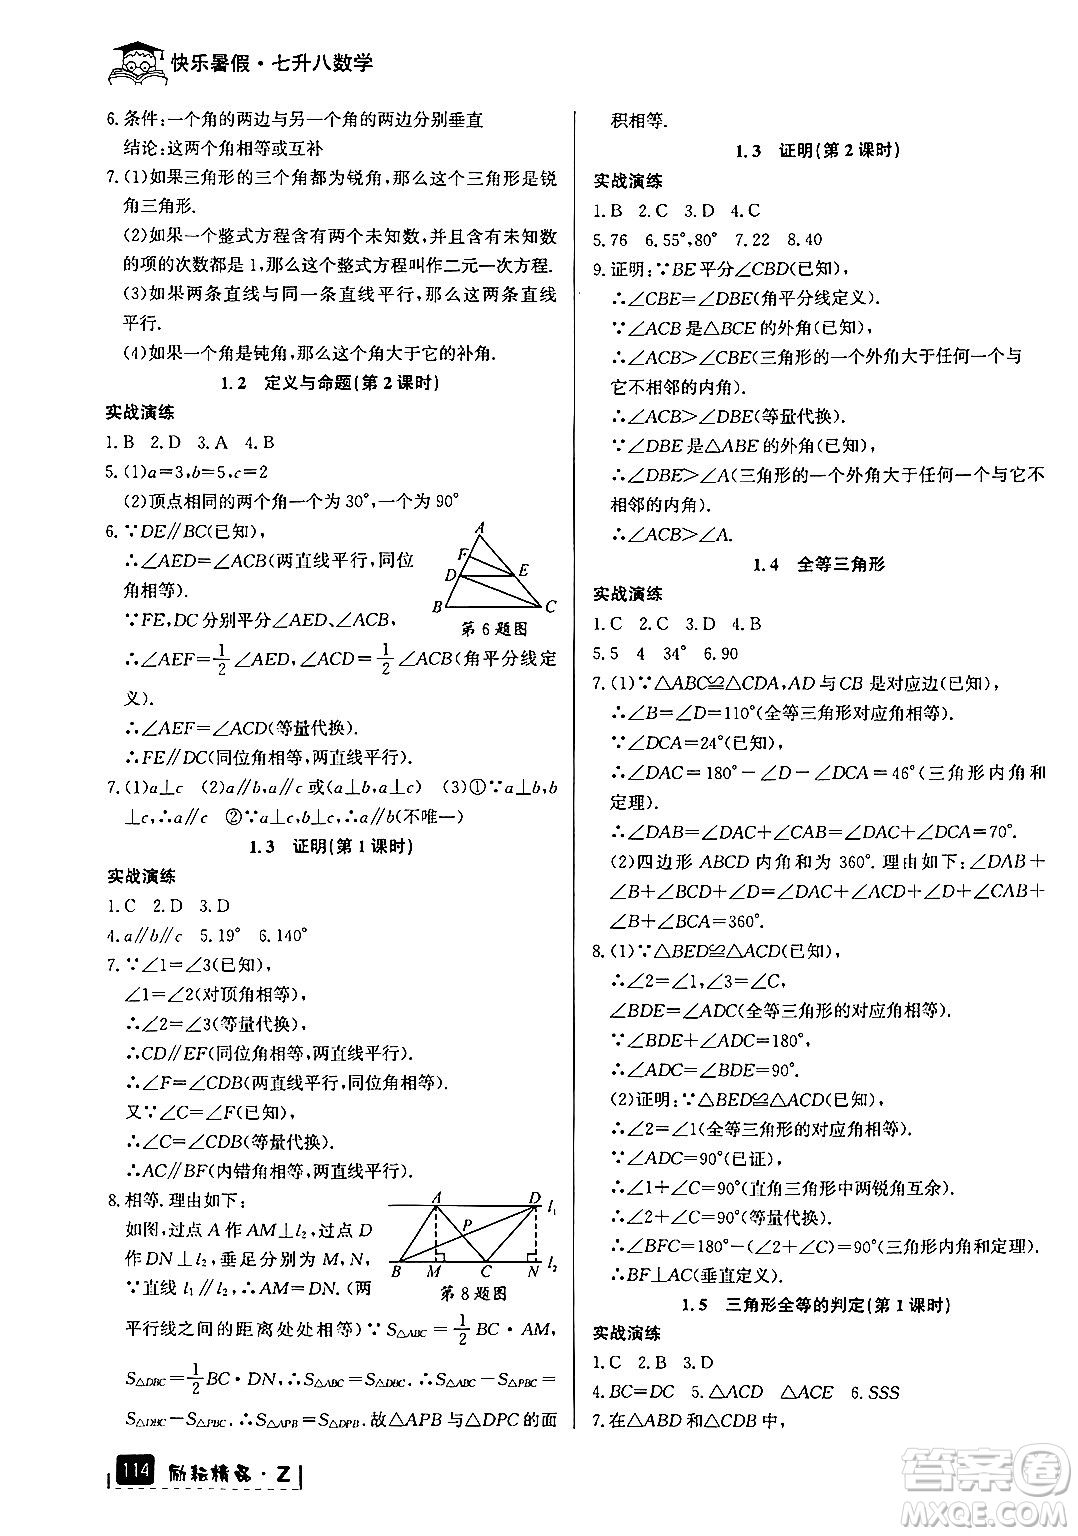 快乐暑假·七升八数学
6.条件:一个角的两边与另一个角的两边分别垂直
结论:这两个角相等或互补
7.(1)如果三角形的三个角都为锐角,那么这个三角形是锐
角三角形.
(2)如果一个整式方程含有两个未知数,并且所含未知数
的项的次数都是1,那么这个整式方程叫作二元一次方程.
(3)如果两条直线与同一条直线平行,那么这两条直线
平行.
(4)如果一个角是钝角,那么这个角大于它的补角.
1.2 定义与命题(第2课时)
实战演练
1.B 2.D 3.A 4.B
5.(1)a=3,b=5,c=2
(2)顶点相同的两个角一个为30°,一个为60°
6.∵DE∥BC(已知),
∴∠AED=∠ACB(两直线平行,同位
角相等).
∵FE,DC分别平分∠AED,∠ACB,
∴∠AEF=1/2∠AED,∠ACD=1/2∠ACB(角平分线定
义).
∴∠AEF=∠ACD(等量代换).
∴FE∥DC(同位角相等,两直线平行).
A
F
D
E
B
C
第6题图
7.(1)a⊥c (2)a∥b,a∥c或(a⊥b,a⊥c) (3)①∵a⊥b,
b⊥c,∴a∥c ②∵a⊥c,b⊥c,∴a∥b(不唯一)
1.3 证明(第1课时)
实战演练
1.C 2.D 3.D
4.a∥b∥c 5.19° 6.140°
7.∵∠1=∠3(已知),
∠1=∠2(对顶角相等),
∴∠2=∠3(等量代换).
∴CD∥EF(同位角相等,两直线平行).
∴∠F=∠CDB(两直线平行,同位角相等).
又∵∠C=∠F(已知),
∴∠C=∠CDB(等量代换).
∴AC∥BF(内错角相等,两直线平行).
8.相等.理由如下:
如图,过点A作AM⊥l₂,过点D
作DN⊥l₂,垂足分别为M,N,
∵直线l₁∥l₂,∴AM=DN.(两
A
D
l₁
P
B
M
C
N
l₂
第8题图
平行线之间的距离处处相等)∵S△ABC=1/2BC·AM,
S△DBC=1/2BC·DN,∴S△ABC=S△DBC.∴S△ABC-S△PBC=
S△DBC-S△PBC.∴S△APB=S△DPB.故△APB与△DPC的面
积相等.
1.3 证明(第2课时)
实战演练
1.B 2.C 3.D 4.C
5.76 6.55°,80° 7.22 8.40
9.证明:∵BE平分∠CBD(已知),
∴∠CBE=∠DBE(角平分线定义).
∵∠ACB是△BCE的外角(已知),
∴∠ACB>∠CBE(三角形的一个外角大于任何一个与
它不相邻的内角).
∴∠ACB>∠DBE(等量代换).
∵∠DBE是△ABE的外角(已知),
∴∠DBE>∠A(三角形的一个外角大于任何一个与它不
相邻的内角).
∴∠ACB>∠A.
1.4 全等三角形
实战演练
1.C 2.C 3.D 4.B
5.5 4 34° 6.90
7.(1)∵△ABC≌△CDA,AD与CB是对应边(已知),
∴∠B=∠D=110°(全等三角形对应角相等).
∵∠DCA=24°(已知),
∴∠DAC=180°-∠D-∠DCA=46°(三角形内角和
定理).
∴∠DAB=∠DAC+∠CAB=∠DAC+∠DCA=70°.
(2)四边形ABCD内角和为360°.理由如下:∠DAB+
∠B+∠BCD+∠D=∠DAC+∠DCA+∠D+∠CAB+
∠B+∠BCA=360°.
8.(1)∵△BED≌△ACD(已知),
∴∠2=∠1,∠3=∠C,
∠BDE=∠ADC(全等三角形的对应角相等).
∵∠BDE+∠ADC=180°,
∴∠ADC=∠BDE=90°.
(2)证明:∵△BED≌△ACD(已知),
∴∠2=∠1(全等三角形的对应角相等).
∵∠ADC=90°(已证),
∴∠1+∠C=90°(直角三角形中两锐角互余).
∴∠2+∠C=90°(等量代换).
∴∠BFC=180°-90°=90°(三角形内角和定理).
∴BF⊥AC(垂直定义).
1.5 三角形全等的判定(第1课时)
实战演练
1.C 2.B 3.D
4.BC=DC 5.△ACD △ACE 6.SSS
7.在△ABD和△CDB中,
114 励耘精品·Z
答案圈
MXQE.COM